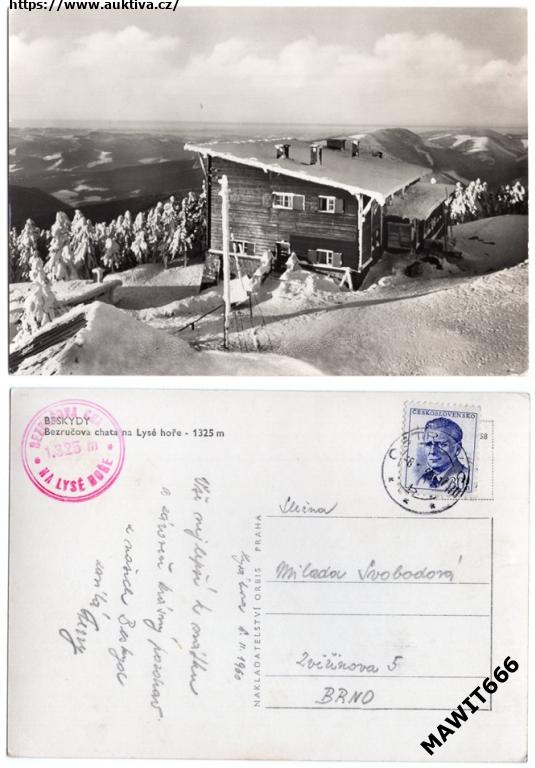 https://www.auktiva.cz/
BEZRUČOVA CHATA
1.325 m
• NA LYSÉ HOŘE •
BESKYDY
Bezručova chata na Lysé hoře - 1325 m
ČESKOSLOVENSKO
58
Vše nejlepší k svátku
a zároveň krásný pozdrav
z našich Beskyd
8. II. 1960
NAKLADATELSTVÍ ORBIS PRAHA
Slečna
Milada Svobodová
Zvěřinova 5
BRNO
MAWIT666